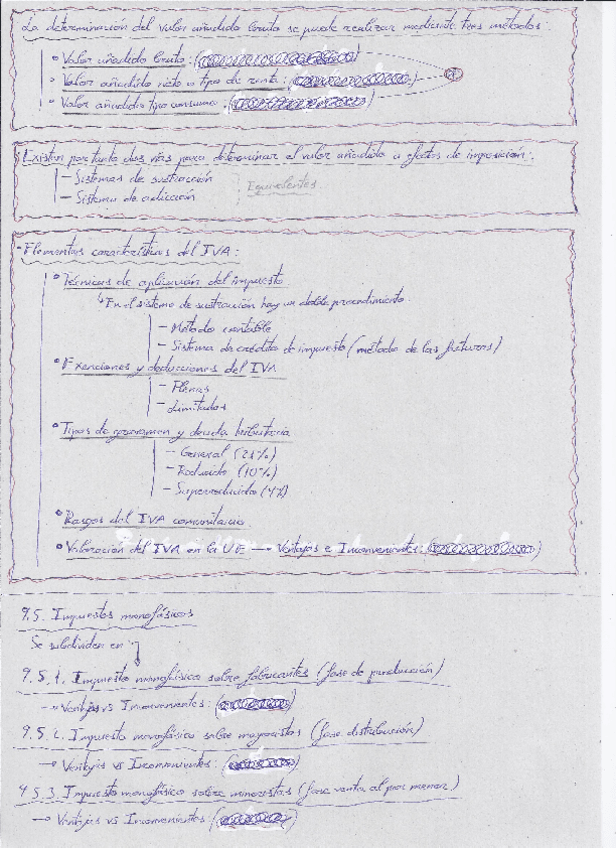 La determinación del valor añadido bruto se puede realizar mediante tres métodos:
• Valor añadido bruto: ( )
• Valor añadido neto o tipo de renta: ( )
• Valor añadido tipo consumo: ( )
Existen por tanto dos vías para determinar el valor añadido a efectos de imposición:
— Sistemas de sustracción
— Sistema de adicción
Equivalentes
- Elementos característicos del IVA:
• Técnicas de aplicación del impuesto
↳ En el sistema de sustracción hay un doble procedimiento:
— Método contable
— Sistema de crédito de impuesto (método de las facturas)
• Exenciones y deducciones del IVA
— Plenas
— Limitadas
• Tipos de gravamen y deuda tributaria
— General (21%)
— Reducido (10%)
— Superreducido (4%)
• Rasgos del IVA comunitario
• Valoración del IVA en la UE → Ventajas e Inconvenientes: ( )
9.5. Impuestos monofásicos
Se subdividen en
9.5.1. Impuesto monofásico sobre fabricantes (fase de producción)
→ Ventajas vs Inconvenientes: ( )
9.5.2. Impuesto monofásico sobre mayoristas (fase distribución)
→ Ventajas vs Inconvenientes: ( )
9.5.3. Impuesto monofásico sobre minoristas (fase venta al por menor)
→ Ventajas vs Inconvenientes: ( )